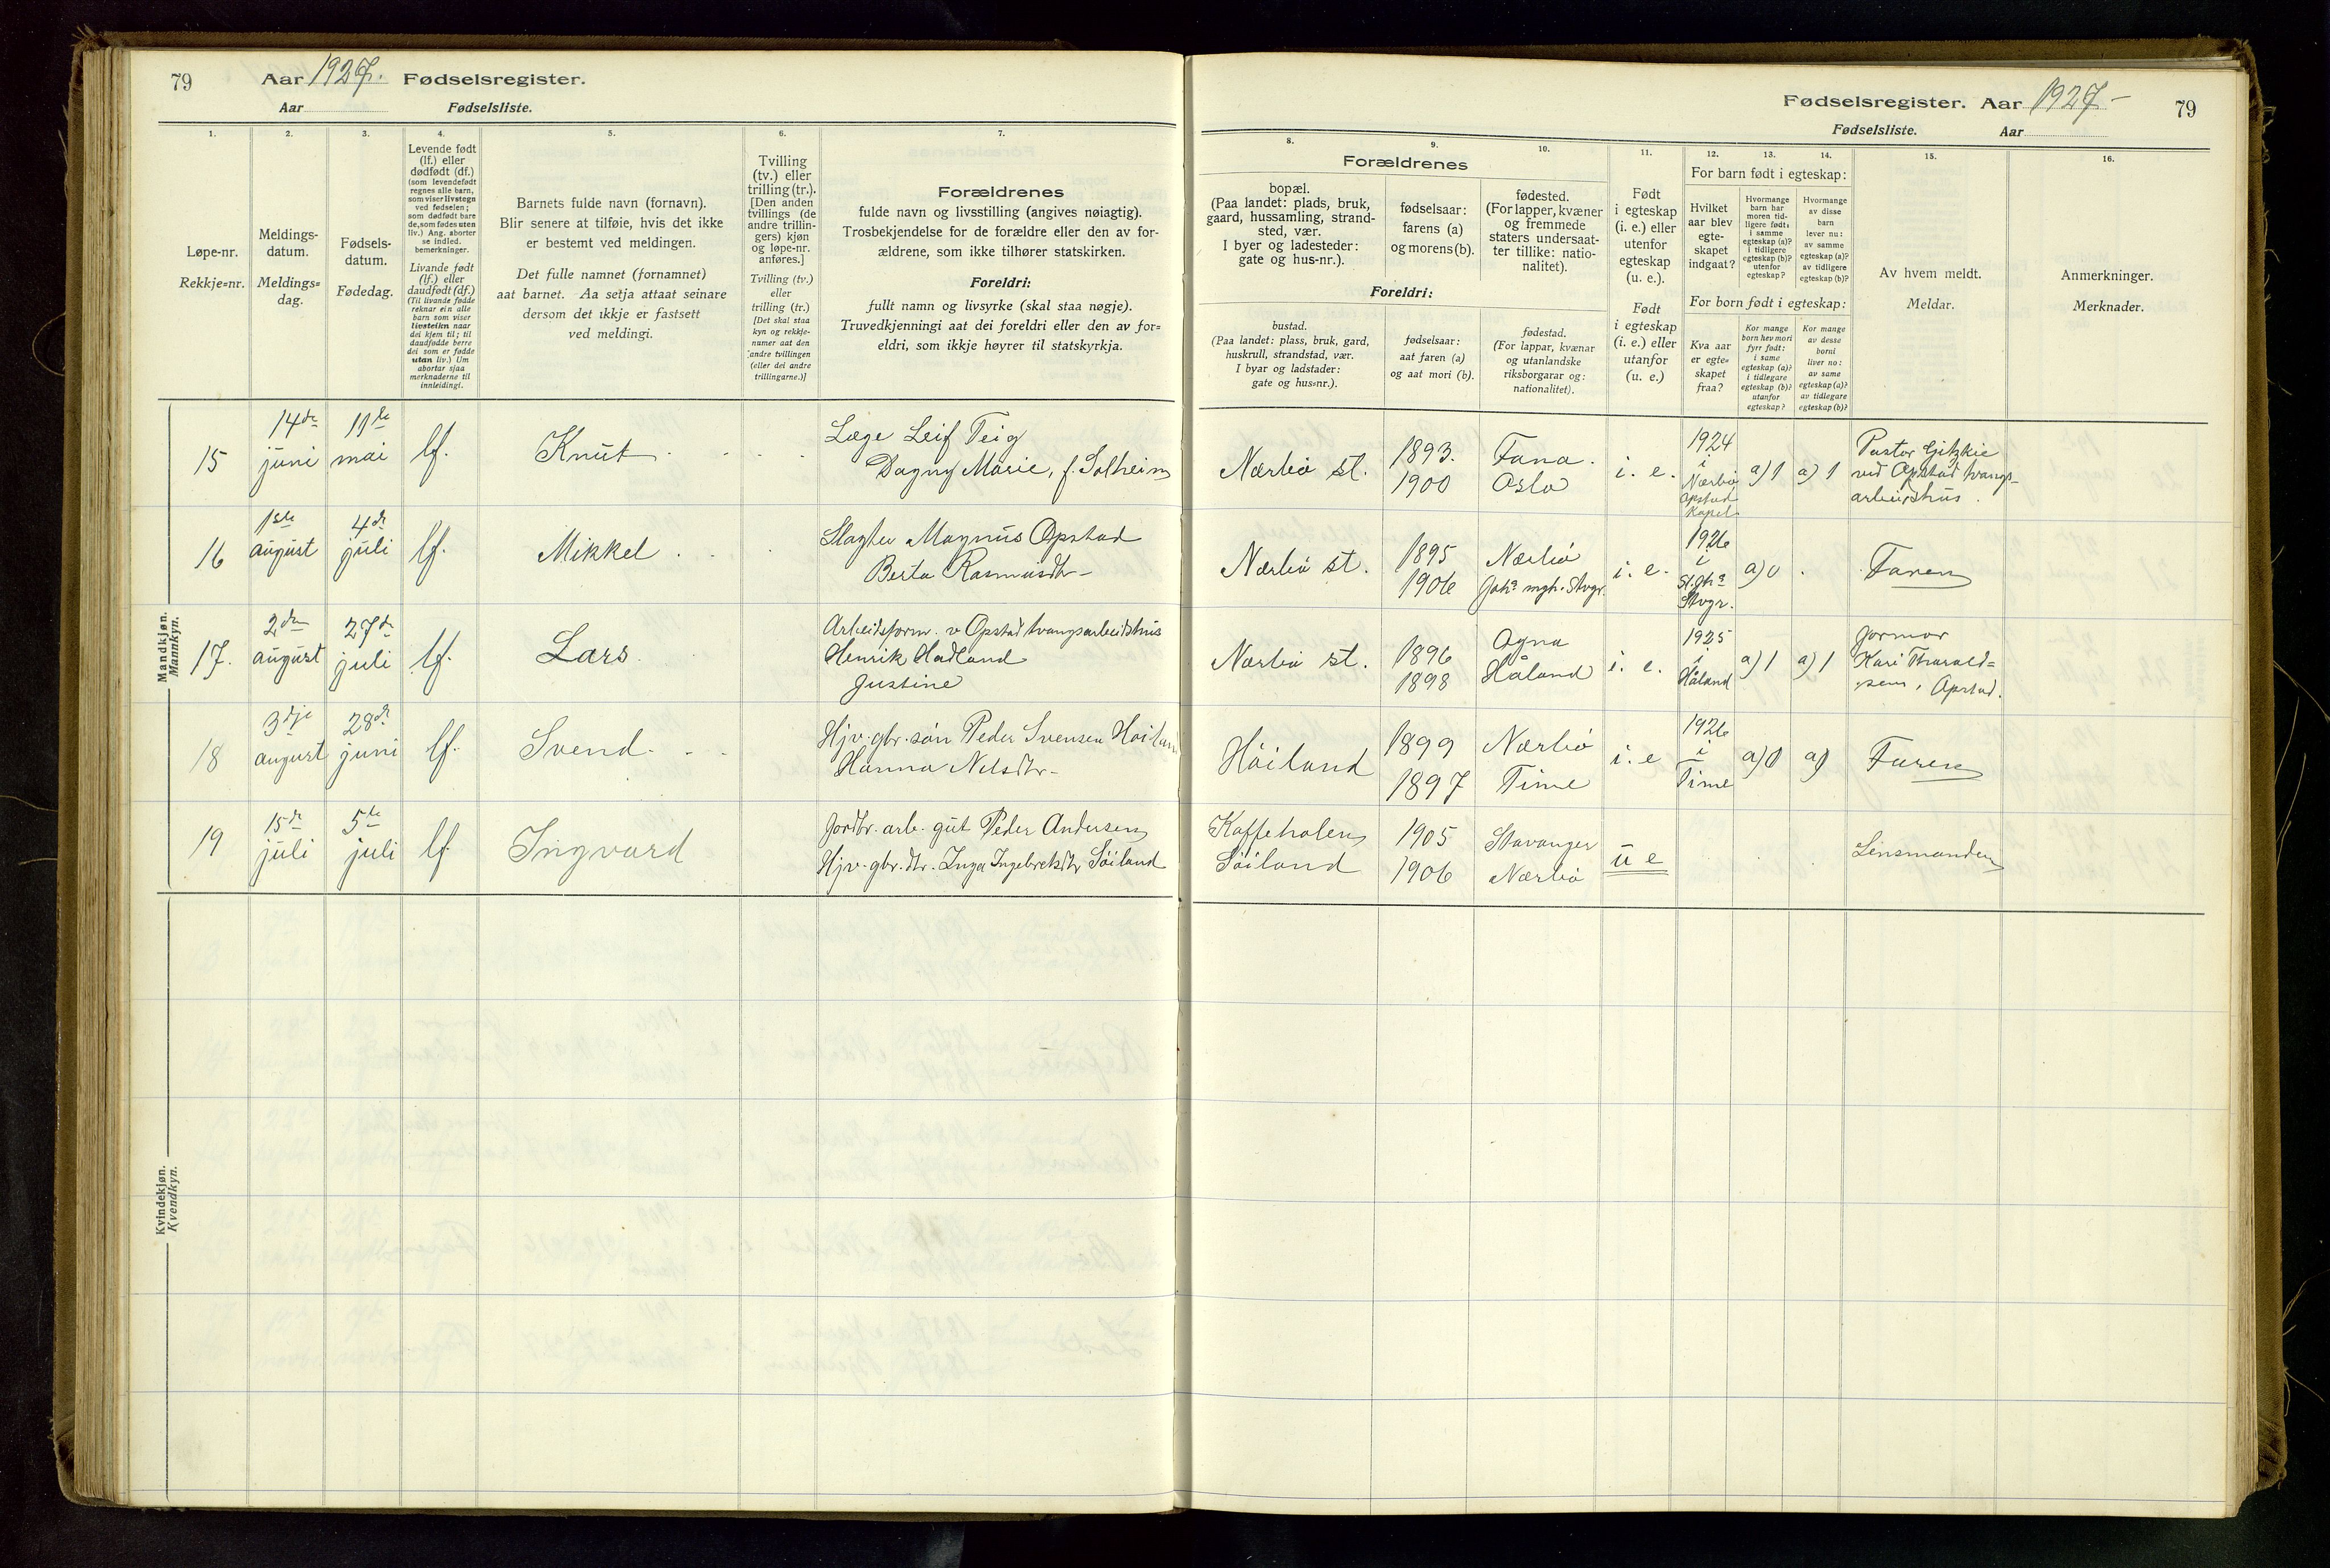 79 Aar 1927. Fødselsregister.
Aar Fødselsliste.
1. 2. 3. 4. 5. 6. 7.
Løpe-nr.
Rekkje=nr.
Meldings-
datum.
Meldings=
dag.
Fødsels-
datum.
Fødedag.
Levende født
(lf.) eller
dødfødt (df.)
(som levendefødt
regnes alle barn,
som viser livstegn
ved fødselen;
som dødfødt bare
de, som fødes uten
liv.) Ang. aborter
se indled.
bemerkninger.
Livande født
(lf.) eller
daudfødt (df.)
(Til livande fødde
reknar ein alle
barn som viser
livsteikn naar
dei kjem til; til
daudfødde berre
dei som er fødde
utan liv.) Um
abortar sjaa
merknaderne til
innleidingi.
Barnets fulde navn (fornavn).
Blir senere at tilføie, hvis det ikke
er bestemt ved meldingen.
Det fulle namnet (fornamnet)
aat barnet. Aa setja attaat seinare
dersom det ikkje er fastsett
ved meldingi.
Tvilling
(tv.) eller
trilling (tr.).
[Den anden
tvillings (de
andre trillin-
gers) kjøn
og løpe-nr.
anføres.]
Tvilling (tv.)
eller
trilling (tr.)
[Det skal staa
kyn og rekkje-
numer aat den
andre tvillingen
(eller dei andre
trillingarne.)]
Forældrenes
fulde navn og livsstilling (angives nøiagtig).
Trosbekjendelse for de forældre eller den av for-
ældrene, som ikke tilhører statskirken.
Foreldri:
fullt namn og livsyrke (skal staa nøgje).
Truvedkjenningi aat dei foreldri eller den av for=
eldri, som ikkje høyrer til statskyrkja.
Mandkjøn.
Mannkyn.
15 14de juni 11te mai lf. Knut
Læge Leif Teig
Dagny Marie, f. Solheim
16 1ste august 4de juli lf. Mikkel
Slagter Magnus Opstad
Berta Rasmusdtr
17. 2den august 27de juli lf. Lars
Arbeidsform. v Opstad tvangsarbeidshus
Henrik Hadland
Justine
18 3dje august 28de juni lf. Svend
Hjv. gbr. søn Peder Svensen Høiland
Hanna Nelsdtr
19 15de juli 5te juli lf. Ingvard
Jordbr. arb. gut Peder Andersen
Hjv. gbr. dtr. Inga Ingebretsdtr Søiland
Kvindekjøn.
Kvendkyn.
Fødselsregister. Aar 1927 79
Fødselsliste. Aar
8. 9. 10. 11. 12. 13. 14. 15. 16.
Forældrenes
bopæl.
(Paa landet: plads, bruk,
gaard, hussamling, strand-
sted, vær.
I byer og ladesteder:
gate og hus-nr.).
fødselsaar:
farens (a)
og morens (b).
fødested.
(For lapper, kvæner
og fremmede
staters undersaat-
ter tillike: natio-
nalitet).
Foreldri:
bustad.
(Paa landet: plass, bruk, gard,
huskrull, strandstad, vær.
I byar og ladstader:
gate og hus=nr.).
fødselsaar:
aat faren (a)
og aat mori (b).
fødestad.
(For lappar, kvænar
og utanlandske
riksborgarar og:
nationalitet).
Født
i egteskap
(i. e.) eller
utenfor
egteskap
(u. e.).
Født
i egteskap
(i. e.) eller
utanfor
(u. e.)
For barn født i egteskap:
Hvilket
aar blev
egte-
skapet
indgaat?
Hvormange
barn har
moren tid-
ligere født:
i samme
egteskap (a)?
i tidligere
egteskap (b)?
utenfor
egteskap?
Hvormange
av disse
barn
lever nu:
av samme
egteskap (a)?
av tidligere
egteskap (b)?
For born født i egteskap:
Kva aar
er egte=
skapet
fraa?
Kor mange
born hev mori
fyrr født:
i same
egteskap (a)?
i tidlegare
egteskap (b)?
utanfor
egteskap?
Kor mange
av desse
borni
liver no:
av same
egteskap (a)?
av tidlegare
egteskap (b)?
Av hvem meldt.
Meldar.
Anmerkninger.
Merknader.
Nærbø st. 1893. 1900 Fana. Oslo i. e. 1924 i Nærbø Opstad Kapel a) 1 a) 1
Pastor
ved Opstad tvangs-
arbeidshus.
Nærbø st. 1895 1906 Nærbø Stvgr. i. e. 1926 i Stvgr. a) 0 Faren
Nærbø st. 1896 1898 Ogna Håland i. e. 1925 i Håland a) 1 a) 1
Jormor
Kari Tharald=
sen, Opstad.
Høiland 1899 1897 Nærbø Time i. e 1926 i Time a) 0 a) Faren
Søiland 1905 1906 Stavanger Nærbø u e Lensmanden